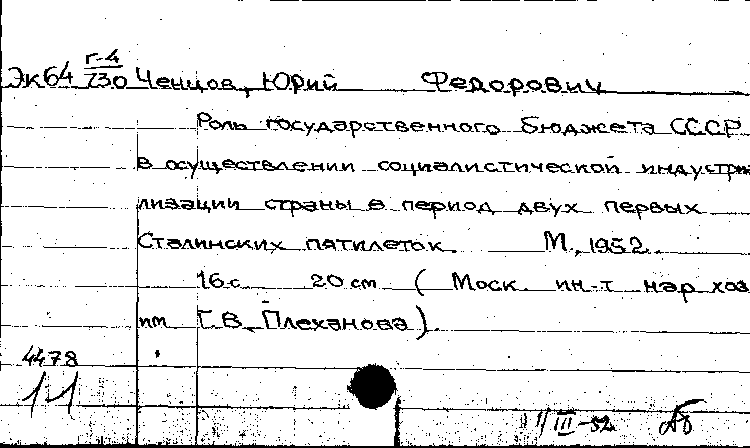 Эк64 Г-4/730 Ченцов, Юрий Федорович
Роль государственного бюджета СССР
в осуществлении социалистической индустриа
лизации страны в период двух первых
Сталинских пятилеток. М., 1952.
16 с 20 см (Моск. ин-т нар. хоз
им Г. В. Плеханова).
4478
11
1/III-52